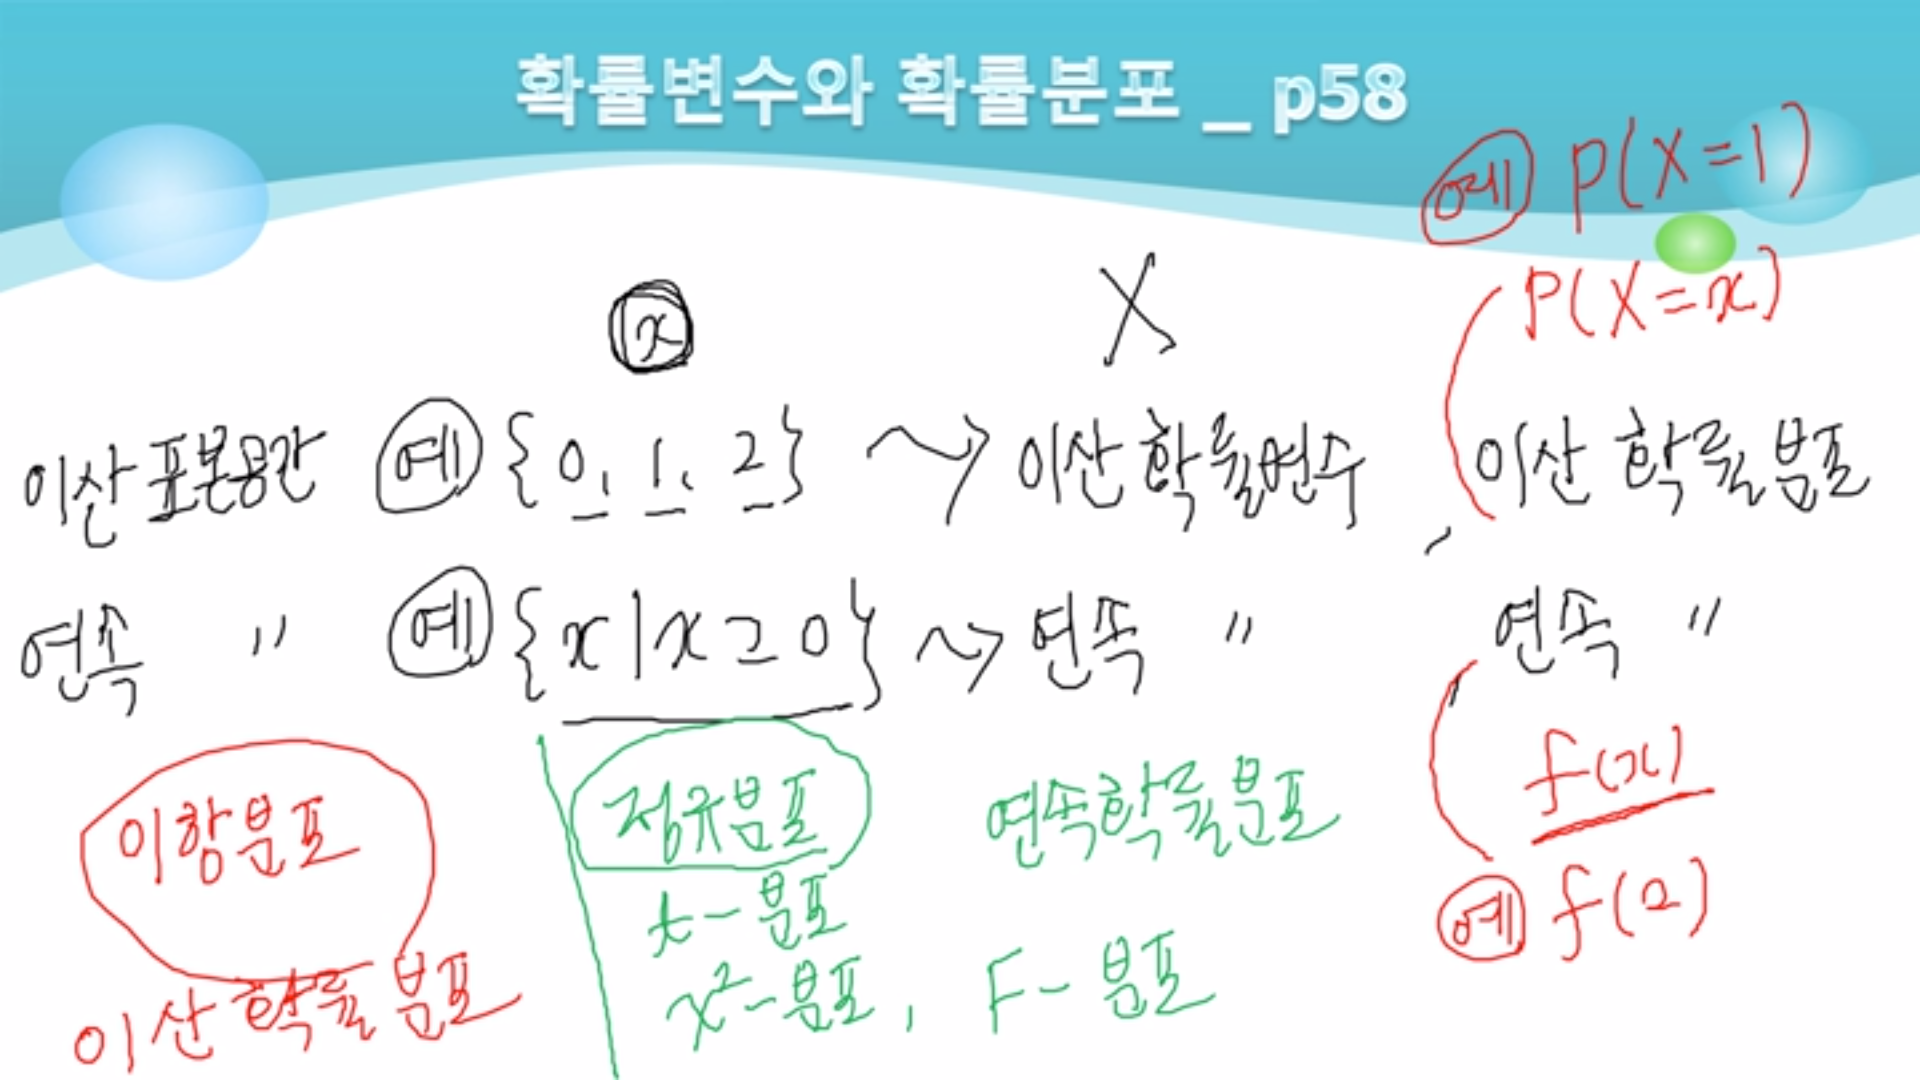 확률변수와 확률분포 _ p58
예 P(X=1)
x X P(X=x)
이산표본공간 예 {0, 1, 2} ~> 이산확률변수, 이산확률분포
연속 〃 예 {x|x≥0} ~> 연속 〃 연속 〃
f(x)
이항분포 정규분포 연속확률분포
t-분포 예 f(2)
이산확률분포 χ²-분포, F-분포